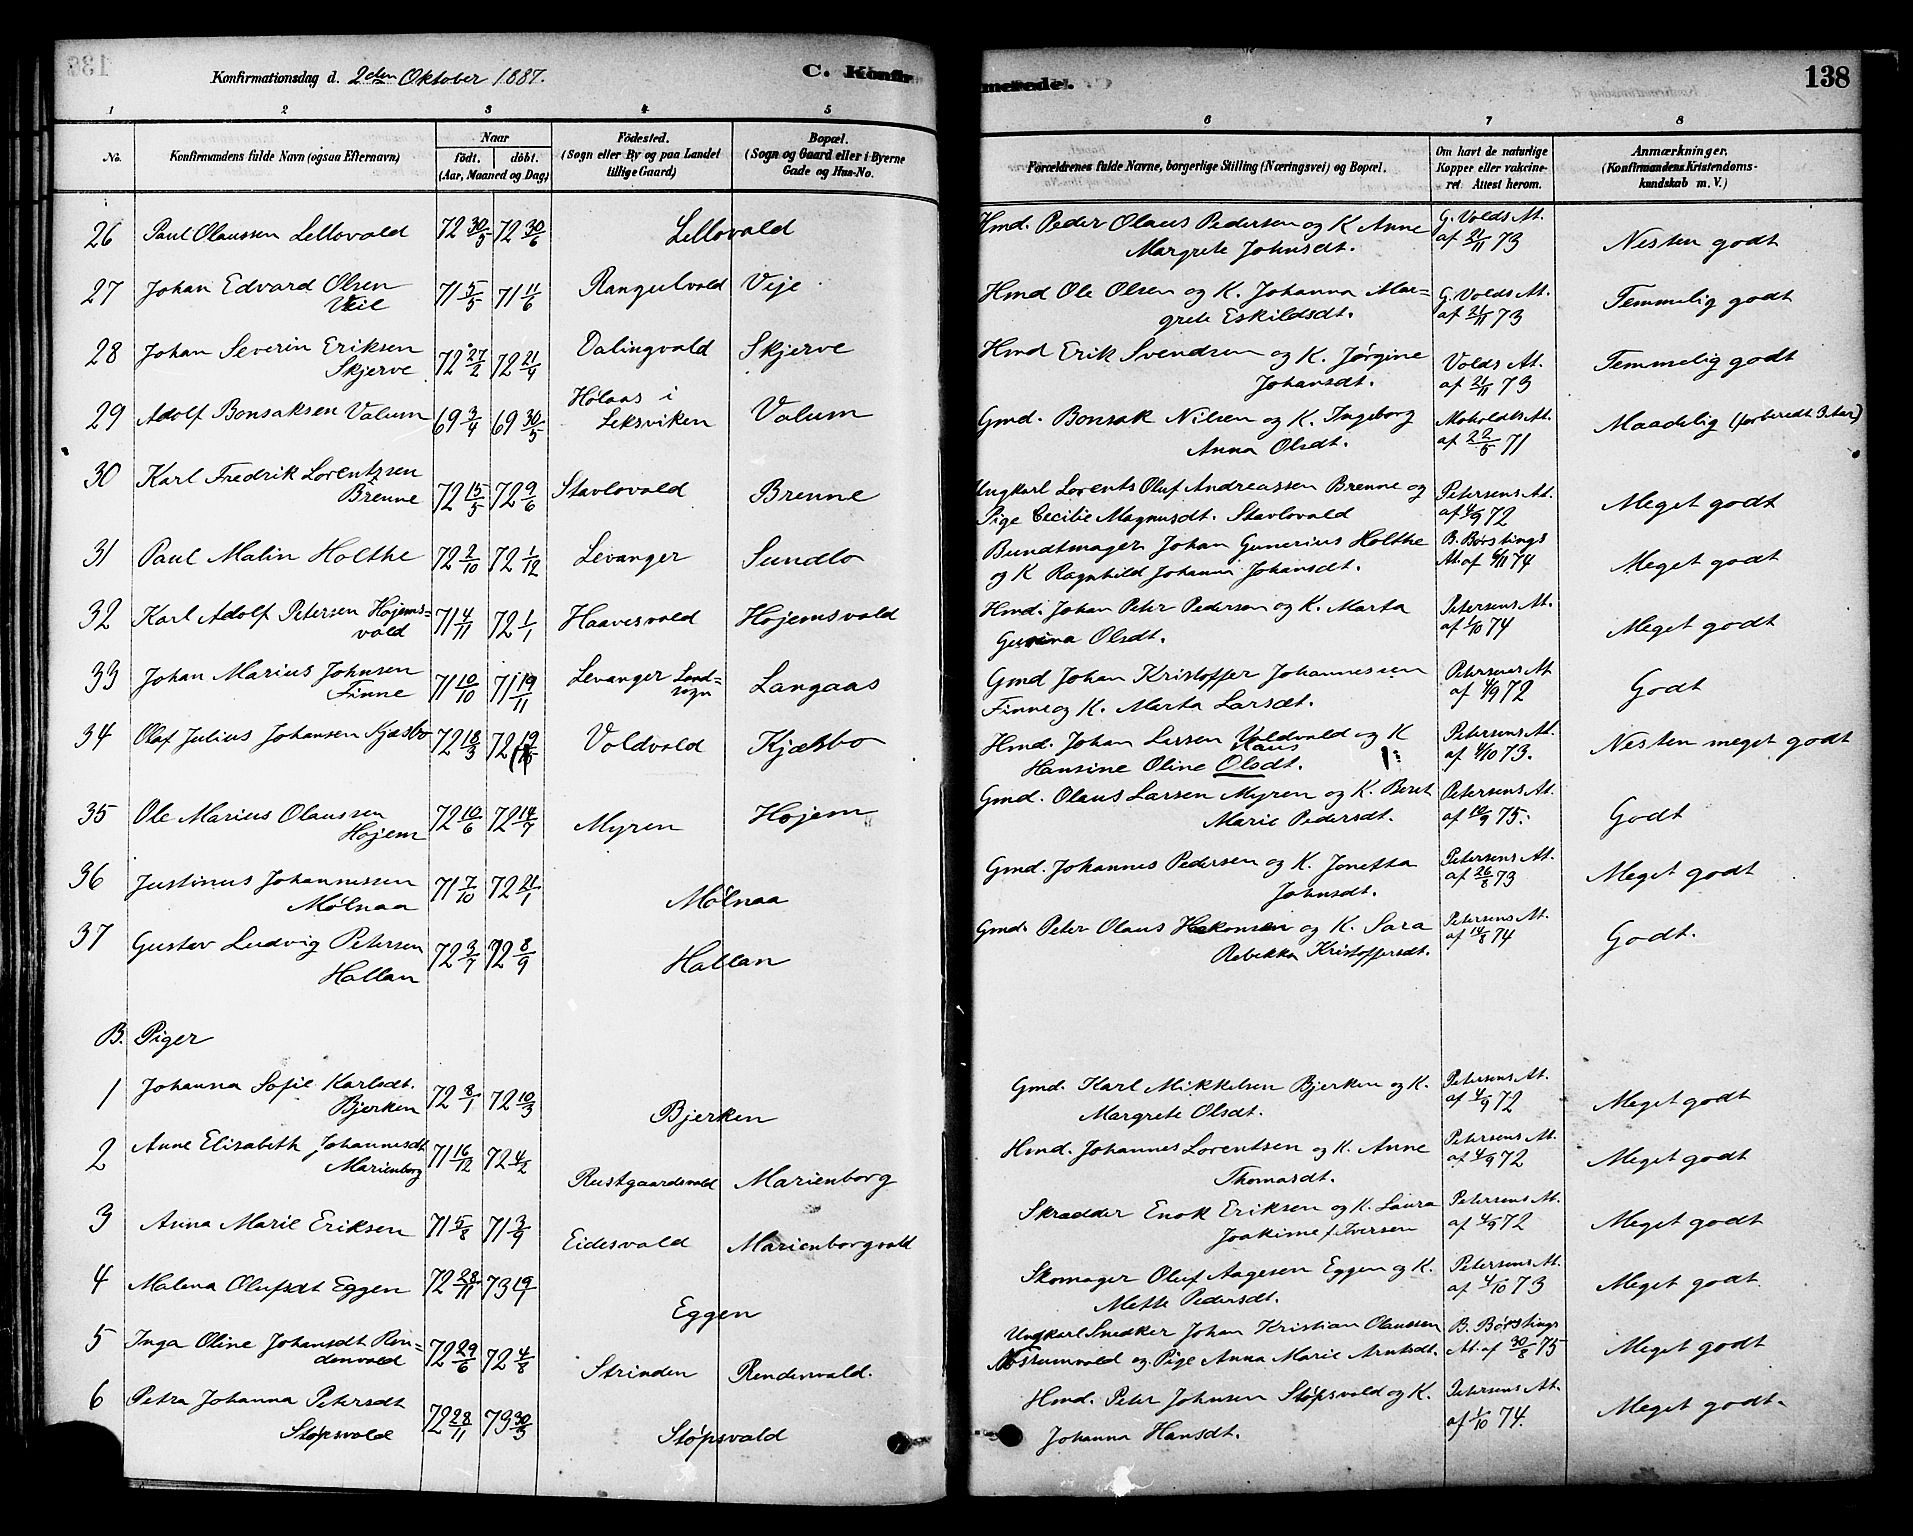 Konfirmationsdag d. 2den Oktober 1887.
C. Konfirmerede.
138
1 2 3 4 5 6 7 8
No.
Konfirmandens fulde Navn (ogsaa Efternavn)
Naar
født. døbt.
(Aar, Maaned og Dag)
Fødested.
(Sogn eller By og paa Landet
tillige Gaard)
Bopæl.
(Sogn og Gaard eller i Byerne
Gade og Hus-No.
Forældrenes fulde Navne, borgerlige Stilling (Næringsvei) og Bopæl.
Om havt de naturlige
Kopper eller vakcine-
ret Attest herom.
Anmærkninger.
(Konfirmandens Kristendoms-
kundskab m. V.)
26 Paul Olaussen Lellovald 72 30/5 72 30/6 Lellovald Hmd. Peder Olaus Pedersen og K. Anne G. Volds At.
Margrete Johnsdt. af 21/11 73 Nesten godt
27 Johan Edvard Olsen 71 5/5 71 11/6 Rangulvald Veje Hmd Ole Olsen og K. Johanna Mar= G. Volds At.
Veie grete Eskildsdt. af 21/11 73 Temmelig godt
28 Johan Severin Eriksen 72 27/2 72 21/4 Dalingvald Skjerve Hmd Erik Svendsen og K. Jørgine Volds At.
Skjerve Johansdt. af 21/11 73 Temmelig godt
29 Adolf Bonsaksen Valum 69 3/4 69 30/5 Hølaas i Valum Gmd. Bonsak Nilsen og K. Ingeborg Moholdts At.
Leksviken Anna Olsdt. af 22/5 71 Maadelig (forberedt 3. Aar)
30 Karl Fredrik Lorentzsen Ungkarl Lorents Oluf Andreassen Brenne og Petersens At.
Brenne 72 15/5 72 9/6 Stavlovald Brenne Pige Cecilie Magnusdt. Stavlovald af 4/9 72 Meget godt
31 Paul Malin Holthe 72 2/10 72 1/12 Levanger Sundlo Bundtmager Johan Gunerius Holthe B. Børstings
og K Ragnhild Johanna Johansdt. At. af 6/11 74 Meget godt
32 Karl Adolf Petersen Højems= 71 4/11 72 1/1 Haavesvald Højemsvald Hmd. Johan Peter Pedersen og K. Marta Petersens At.
vald Olsdt. af 1/10 74 Meget godt
33 Johan Marius Johnsen 71 10/10 71 19/11 Levanger Land= Langaas Gmd Johan Kristoffer Johannessen Petersens At
Finne sogn Finne og K. Marta Larsdt. af 4/9 72 Godt
34 Olaf Julius Johansen Kjæsbo 72 18/3 72 Voldvald Kjælsbo Hmd. Johan Larsen Voldvald og K Petersens At.
Hansine Oline Olsdt. Haus af 4/10 73. Nesten meget godt
35 Ole Marius Olaussen 72 10/6 72 14/7 Myren Højem Gmd. Olaus Larsen Myren og K. Beret Petersens At.
Højem Marie Pedersdt. af 10/9 75. Godt
36 Justinus Johannessen 71 7/10 72 21/1 Mølnaa Gmd. Johannes Pedersen og K. Jonetta Petersens At.
Mølnaa Johnsdt. af 26/8 73 Meget godt
37 Gustav Ludvig Petersen 72 3/7 72 8/9 Hallan Gmd. Peter Olaus Hakonsen og K. Sara Petersens At.
Hallan Rebekka Kristoffersdt. af 14/8 74 Godt.
B. Piger
1 Johanna Sofie Karlsdt. 72 8/1 72 10/3 Bjerken Gmd. Karl Mikkelsen Bjerken og K. Petersens At.
Bjerken Margrete Olsdt. af 4/9 72 Meget godt
2 Anne Elisabeth Johannesdt 71 16/12 72 4/2 Rustgaardsvald Marienborg Hmd. Johannes Lorentsen og K. Anne Petersens At.
Marienborg Thomasdt. af 4/9 72 Meget godt
3 Anna Marie Eriksen 71 5/8 71 3/9 Eidesvald Marienborgvald Skrædder Enok Eriksen og K. Laura Petersens At.
Joakime f. Iversen af 4/9 72 Meget godt
4 Malena Olufsdt Eggen 72 28/11 73 19/1 Eggen Skomager Oluf Aagesen Eggen og K. Petersens At.
Mette Pedersdt. af 4/10 73 Meget godt
5 Inga Oline Johansdt Ren= 72 29/6 72 4/8 Strinden Rendenvald. Ungkarl Snedker Johan Kristian Olaussen B. Børstings
denvald og Pige Anna Marie Arntsdt. At. af 30/8 75 Meget godt
6 Petra Johanna Petersdt 72 28/11 73 30/3 Støpsvald Hmd. Peter Johnsen Støpsvald og K. Petersens At.
Støpsvald Johanna Hansdt. af 1/10 74. Meget godt.